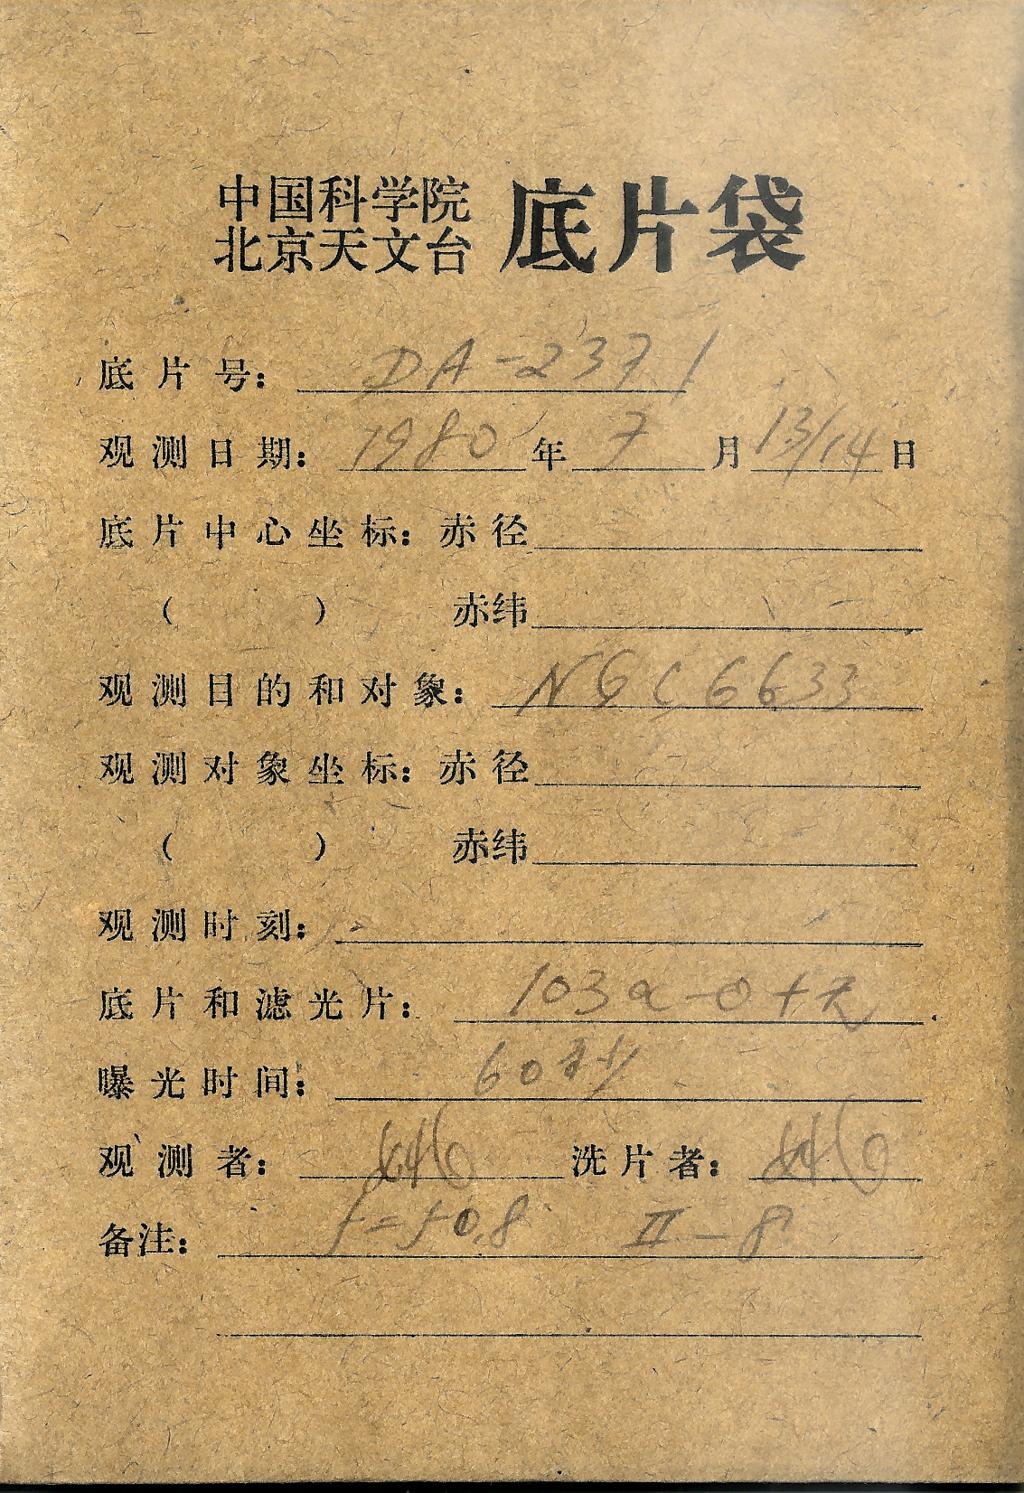 中国科学院
北京天文台 底片袋
底片号: DA-2371
观测日期: 1980年 7月 13/14日
底片中心坐标: 赤径
( ) 赤纬
观测目的和对象: NGC 6633
观测对象坐标: 赤径
( ) 赤纬
观测时刻:
底片和滤光片: 103a-O+无
曝光时间: 60秒
观测者: 洗片者:
备注: II-8